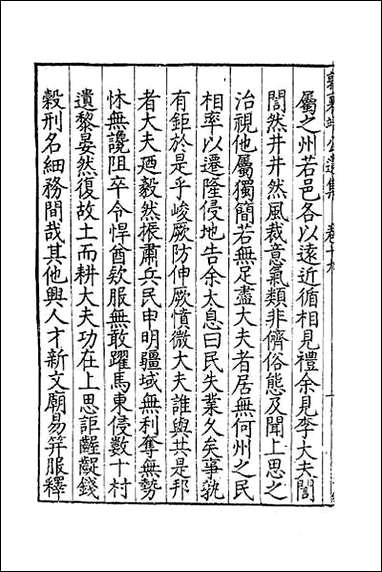 屬之州若邑各以遠近循相見禮余見李大夫誾
誾然井井然風裁意氣類非儕俗態及聞上思之
治視他屬獨簡若無足盡大夫者居無何州之民
相率以遷隆侵地告余太息曰民失業久矣事孰
有鉅於是乎峻厥防伸厥憤微大夫誰與共是邦
者大夫廼毅然振肅兵民申明疆域無利奪無勢
怵無讒阻卒令悍酋欸服無敢躍馬東侵數十村
遺黎晏然復故土而耕大夫功在上思詎齷齪錢
穀刑名細務間哉其他興人才新文廟易笄服釋